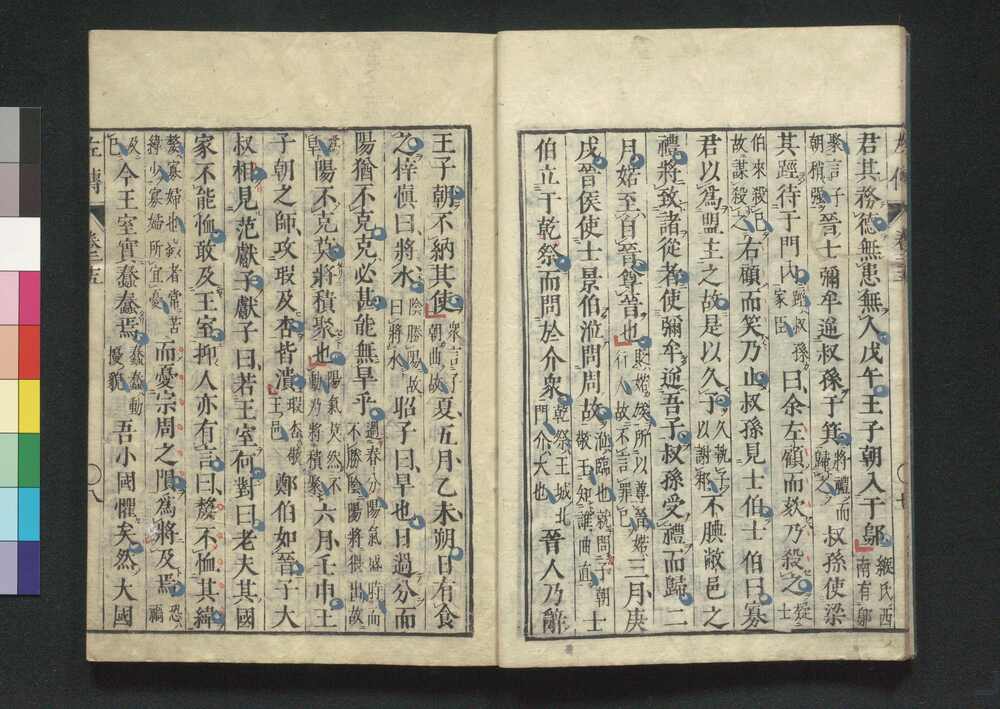 君其務德無患無人戊午王子朝入于鄔緱氏西南有鄔
聚言子朝稍强晉士彌牟逆叔孫于箕將禮而歸之叔孫使梁
其踁待于門內踁叔孫家臣曰余左顧而欬乃殺之疑士
伯來殺己故謀殺之右顧而笑乃止叔孫見士伯士伯曰寡
君以爲盟主之故是以久子久執子以謝邾不腆敝邑之
禮將致諸從者使彌牟逆吾子叔孫受禮而歸二
月婼至自晉尊晉也貶婼族所以尊晉婼行人故不言罪己三月庚
戌晉侯使士景伯涖問周故涖臨也就問子朝敬王知誰曲直士
伯立于乾祭而問於介衆乾祭王城北門介大也晉人乃辭
王子朝不納其使衆言子朝曲故夏五月乙未朔日有食
之梓愼曰將水陰勝陽故曰將水昭子曰旱也日過分而
陽猶不克克必甚能無旱乎過春分陽氣盛時而不勝陰陽將猥出故
爲旱陽不克莫將積聚也陽氣莫然不動乃將積聚六月壬申王
子朝之師攻瑕及杏皆潰瑕杏敬王邑鄭伯如晉子大
叔相見范獻子獻子曰若王室何對曰老夫其國
家不能恤敢及王室抑人亦有言曰嫠不恤其緯
嫠寡婦也織者常苦緯少寡婦所宜憂而憂宗周之隕爲將及焉恐禍
及己今王室實蠢蠢焉蠢蠢動擾貌吾小國懼矣然大國
左傳
八